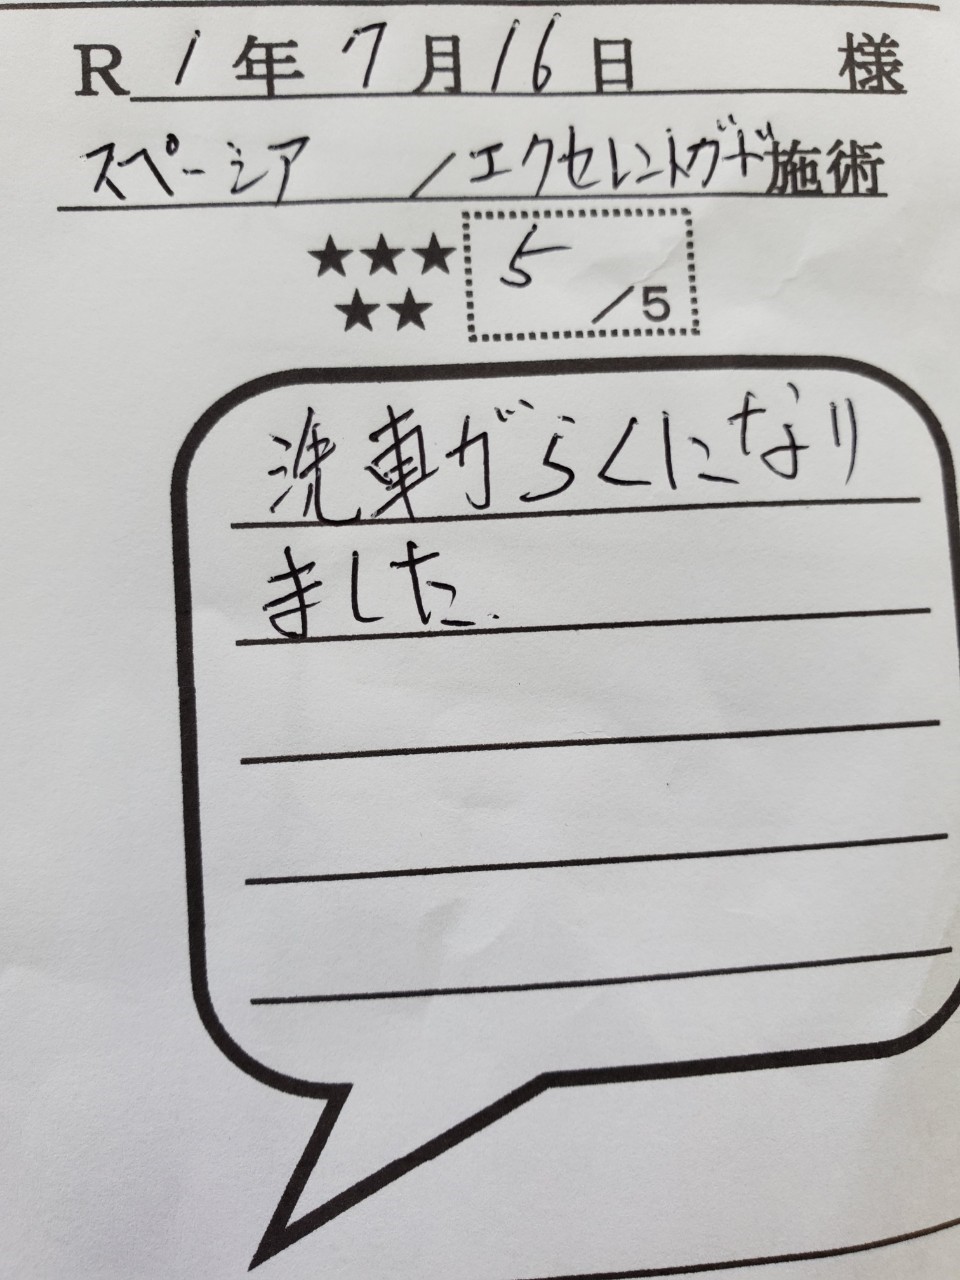 R1年7月16日 様
スペーシア /エクセレントガード施術
★★★ 5
★★ /5
洗車がらくになり
ました.